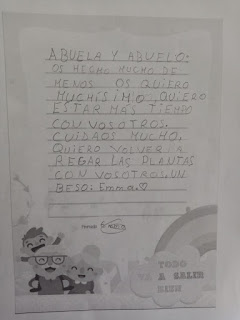 ABUELA Y ABUELO:
OS HECHO MUCHO DE
MENOS OS QUIERO
MUCHÍSIMO. QUIERO
ESTAR MÁS TIEMPO
CON VOSOTROS.
CUIDAOS MUCHO.
QUIERO VOLVER A
REGAR LAS PLANTAS
CON VOSOTROS. UN
BESO: Emma. ♡
TODO
VA A SALIR
BIEN